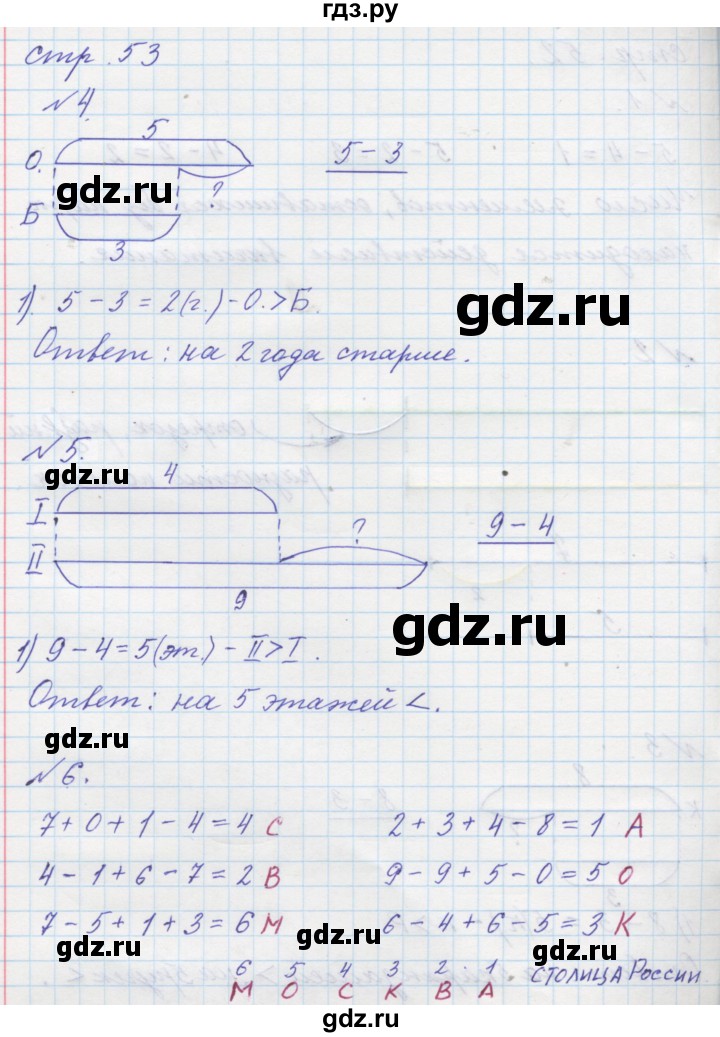 гдз.ру
стр. 53
№4.
5
О.
5 - 3
?
Б
3
1). 5 - 3 = 2(г.) - О.>Б
Ответ: на 2 года старше.
№5.
4
I
9 - 4
?
II
9
1) 9 - 4 = 5(эт.) - II>I.
Ответ: на 5 этажей <.
№6.
7 + 0 + 1 - 4 = 4 С
2 + 3 + 4 - 8 = 1 А
4 - 1 + 6 - 7 = 2 В
9 - 9 + 5 - 0 = 5 О
7 - 5 + 1 + 3 = 6 М
6 - 4 + 6 - 5 = 3 К
6 5 4 3 2 1
М О С К В А
СТОЛИЦА РОССИИ
gdz.ru
gdz.ru
gdz.ru
gdz.ru
gdz.ru
gdz.ru
gdz.ru
gdz.ru
gdz.ru